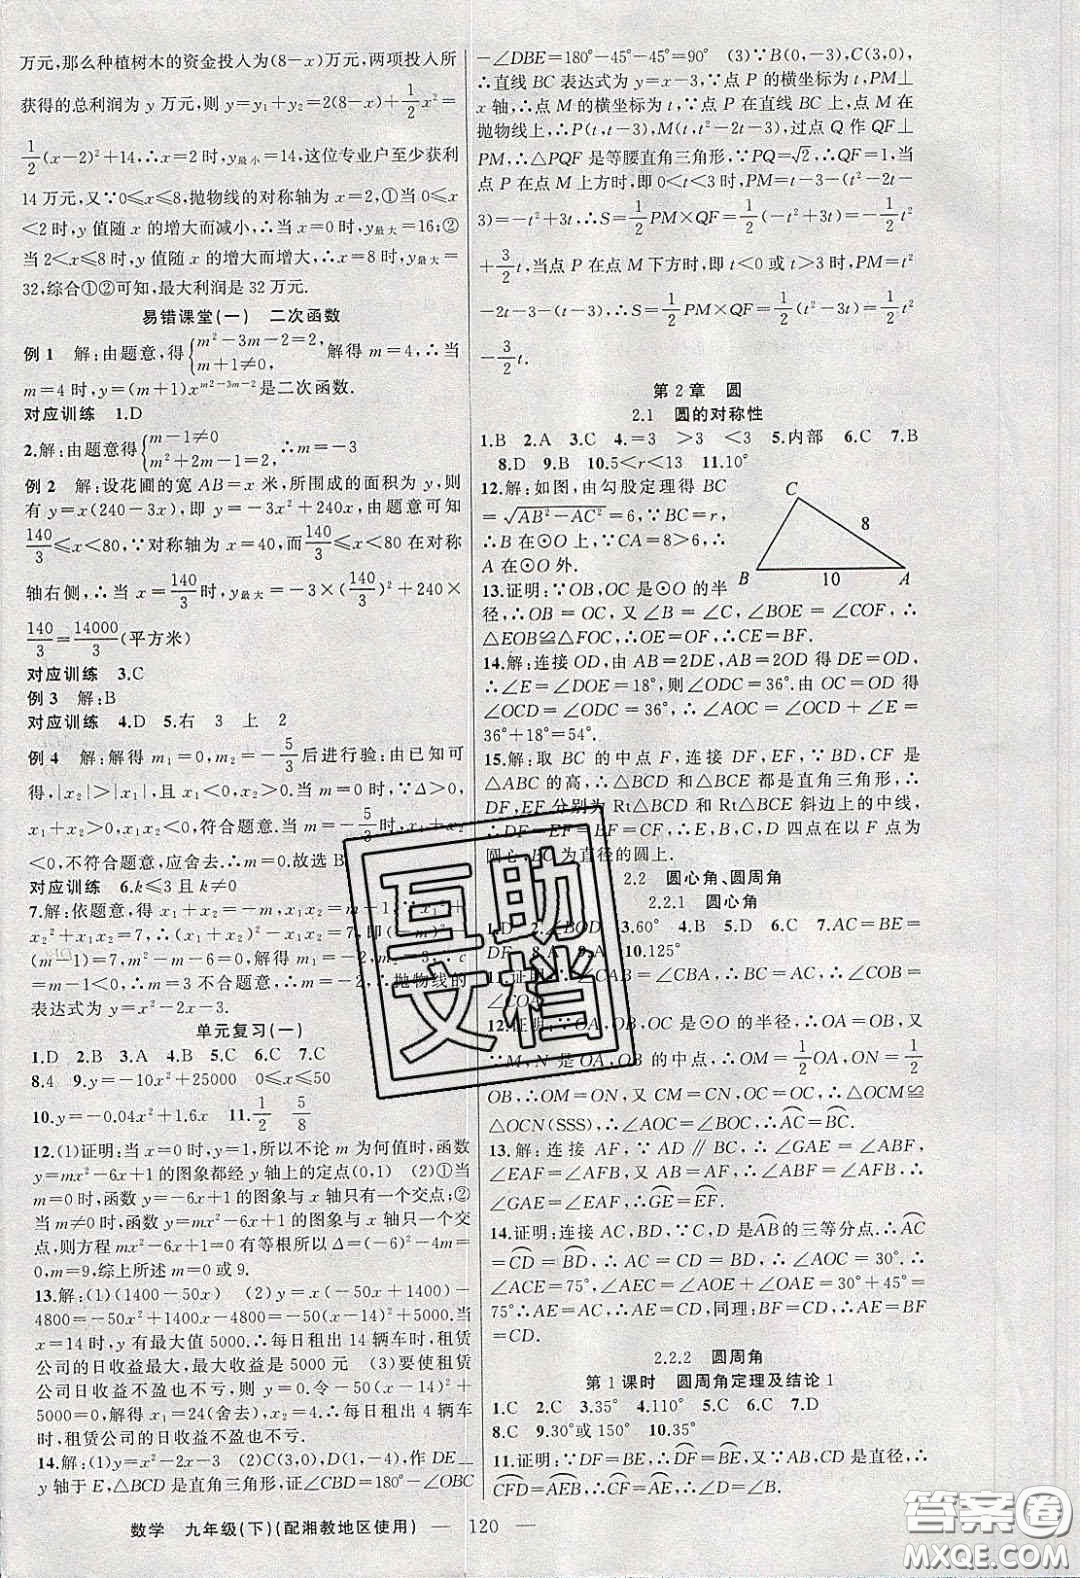 万元,那么种植树木的资金投入为(8-x)万元,两项投入所
获得的总利润为 y 万元,则 y=y₁+y₂=2(8-x)+1/2x²=
1/2(x-2)²+14,∴x=2时,y最小=14,这位专业户至少获利
14万元,又∵0≤x≤8,抛物线的对称轴为x=2,①当0≤x
<2时,y值随x的增大而减小,∴当x=0时,y最大=16;②
当2<x≤8时,y值随x的增大而增大,∴x=8时,y最大=
32,综合①②可知,最大利润是32万元.
易错课堂(一) 二次函数
例1 解:由题意,得{m²-3m-2=2, m+1≠0, 解得m=4,∴当
m=4时,y=(m+1)x^(m²-3m-2)是二次函数.
对应训练 1.D
2.解:由题意得{m-1≠0 m²+2m-1=2 ∴m=-3
例2 解:设花圃的宽AB=x米,所围成的面积为y,则
有y=x(240-3x),即y=-3x²+240x,由题意可知
140/3≤x<80,∵对称轴为x=40,而140/3≤x<80在对称
轴右侧,∴当x=140/3时,y最大=-3×(140/3)²+240×
140/3=14000/3(平方米)
对应训练 3.C
例3 解:B
对应训练 4.D 5.右 3 上 2
例4 解:解得m₁=0,m₂=-5/3后进行验:由已知可
得,|x₂|>|x₁|,x₁<0,x₂>0,∴x₁+x₂>0.∵Δ>0,
x₁+x₂>0,x₁x₂<0,符合题意.当m=-5/3时,x₁+x₂
<0,不符合题意,应舍去.∴m=0;故选B
对应训练 6.k≤3且k≠0
7.解:依题意,得x₁+x₂=m-1,x₁x₂
x₂²+x₁x₂=7,∴(x₁+x₂)²-x₁x₂=7,即(m-1)²-
(m-1)=7,m²-m-6=0.解得m₁=-2,m₂=3.∵c
=m-1<0,∴m=3不合题意,∴m=-2,∴抛物线的
表达式为y=x²-2x-3.
单元复习(一)
1.D 2.B 3.A 4.B 5.C 6.C 7.C
8.4 9.y=-10x²+25000 0≤x≤50
10.y=-0.04x²+1.6x 11.1/2 5/8
12.(1)证明:当x=0时,y=1,所以不论m为何值时,函数
y=mx²-6x+1的图象都经y轴上的定点(0,1) (2)①当
m=0时,函数y=-6x+1的图象与x轴只有一个交点;②
当m≠0时,函数y=mx²-6x+1的图象与x轴只有一个交
点,则方程mx²-6x+1=0有等根所以Δ=(-6)²-4m=
0,m=9,综上所述m=0或9.
13.解:(1)(1400-50x) (2)y=x(-50x+1400)-
4800=-50x²+1400x-4800=-50(x-14)²+5000.当
x=14时,y有最大值5000.∴每日租出14辆车时,租赁
公司的日收益最大,最大收益是5000元 (3)要使租赁
公司的日收益不盈也不亏,即y=0.令-50(x-14)²+
5000=0,解得x₁=24(舍去),x₂=4.∴当每日租出4辆车
时,租赁公司的日收益不盈也不亏.
14.解:(1)y=x²-2x-3 (2)C(3,0),D(1,-4),作DE⊥
y轴于E,△BCD是直角三角形,证∠CBD=180°-∠OBC
-∠DBE=180°-45°-45°=90° (3)∵B(0,-3),C(3,0),
∴直线BC表达式为y=x-3,∵点P的横坐标为t,PM⊥
x轴,∴点M的横坐标为t,∵点P在直线BC上,点M在
抛物线上,∴P(t,t-3),M(t,t²-2t-3),过点Q作QF⊥
PM,∴△PQF是等腰直角三角形,∵PQ=√2,∴QF=1,当
点P在点M上方时,即0<t<3时,PM=t-3-(t²-2t-
3)=-t²+3t,∴S=1/2PM×QF=1/2(-t²+3t)=-1/2t²
+3/2t,当点P在点M下方时,即t<0或t>3时,PM=t²
-2t-3-(t-3),∴S=1/2PM×QF=1/2(t²-3t)=1/2t²
-3/2t.
第2章 圆
2.1 圆的对称性
1.B 2.A 3.C 4.=3 >3 <3 5.内部 6.C 7.B
8.D 9.B 10.5<r<13 11.10°
12.解:如图,由勾股定理得BC
=√AB²-AC²=6,∵BC=r,
∴B在⊙O上.∵CA=8>6,∴
A在⊙O外.
C
8
B 10 A
13.证明:∵OB,OC是⊙O的半
径,∴OB=OC,又∠B=∠C,∠BOE=∠COF,∴
△EOB≌△FOC,∴OE=OF,∴CE=BF.
14.解:连接OD,由AB=2DE,AB=2OD得DE=OD,
∴∠E=∠DOE=18°,则∠ODC=36°.由OC=OD得
∠OCD=∠ODC=36°,∴∠AOC=∠OCD+∠E=
36°+18°=54°.
15.解:取BC的中点F,连接DF,EF,∵BD,CF是
△ABC的高,∴△BCD和△BCE都是直角三角形,∴
DF,EF分别为Rt△BCD和Rt△BCE斜边上的中线,
∴DF=EF=BF=CF,∴E,B,C,D四点在以F点为
圆心,BC为直径的圆上.
2.2 圆心角、圆周角
2.2.1 圆心角
1.D 2.∠BOD 3.60° 4.B 5.D 6.C 7.AC=BE=
DE 8.A 9.A 10.125°
11.证明:∵AB=BC,∴∠CAB=∠CBA,∴∠COB=
∠COA.
12.证明:∵OA,OB,OC是⊙O的半径,∴OA=OB,又
∵M,N是OA,OB的中点,∴OM=1/2OA,ON=1/2
OB,∴OM=ON,又CM=CN,OC=OC,∴△OCM≌
△OCN(SSS),∴∠AOC=∠BOC,∴AC=BC.
13.解:连接AF,∵AD∥BC,∴∠GAE=∠AFB,
∠EAF=∠AFB,又AB=AF,∴∠AFB=∠AFB,∴
∠GAE=∠EAF,∴GE=EF.
14.证明:连接AC,BD,∵C,D是AB的三等分点,∴AC
=CD=BD,∴AC=CD=BD,∠AOC=30°.∴
∠ACE=75°,∠AEC=∠AOE+∠OAE=30°+45°=
75°,∴AE=AC,∴AE=CD,同理:BF=CD,∴AE=BF
=CD.
2.2.2 圆周角
第1课时 圆周角定理及结论1
1.C 2.C 3.35° 4.110° 5.C 6.C 7.D
8.C 9.30°或150° 10.35°
11.证明:∵DF=BE,∴DF=BE,∵AB=CD是直径,∴
CFD=AEB,∴CFD-DF=AEB-BE,即CF=AE,
数学 九年级(下)(配湘教地区使用) — 120 —
互助文档
答案圈
MXQE.COM